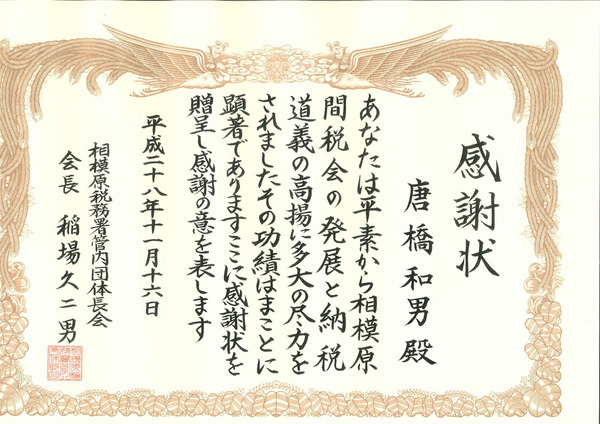 感謝状
唐橋和男殿
あなたは平素から相模原
間税会の発展と納税
道義の高揚に多大の尽力を
されましたその功績はまことに
顕著でありますここに感謝状を
贈呈し感謝の意を表します
平成二十八年十一月十六日
相模原税務署管内団体長会
会長 稲場久二男